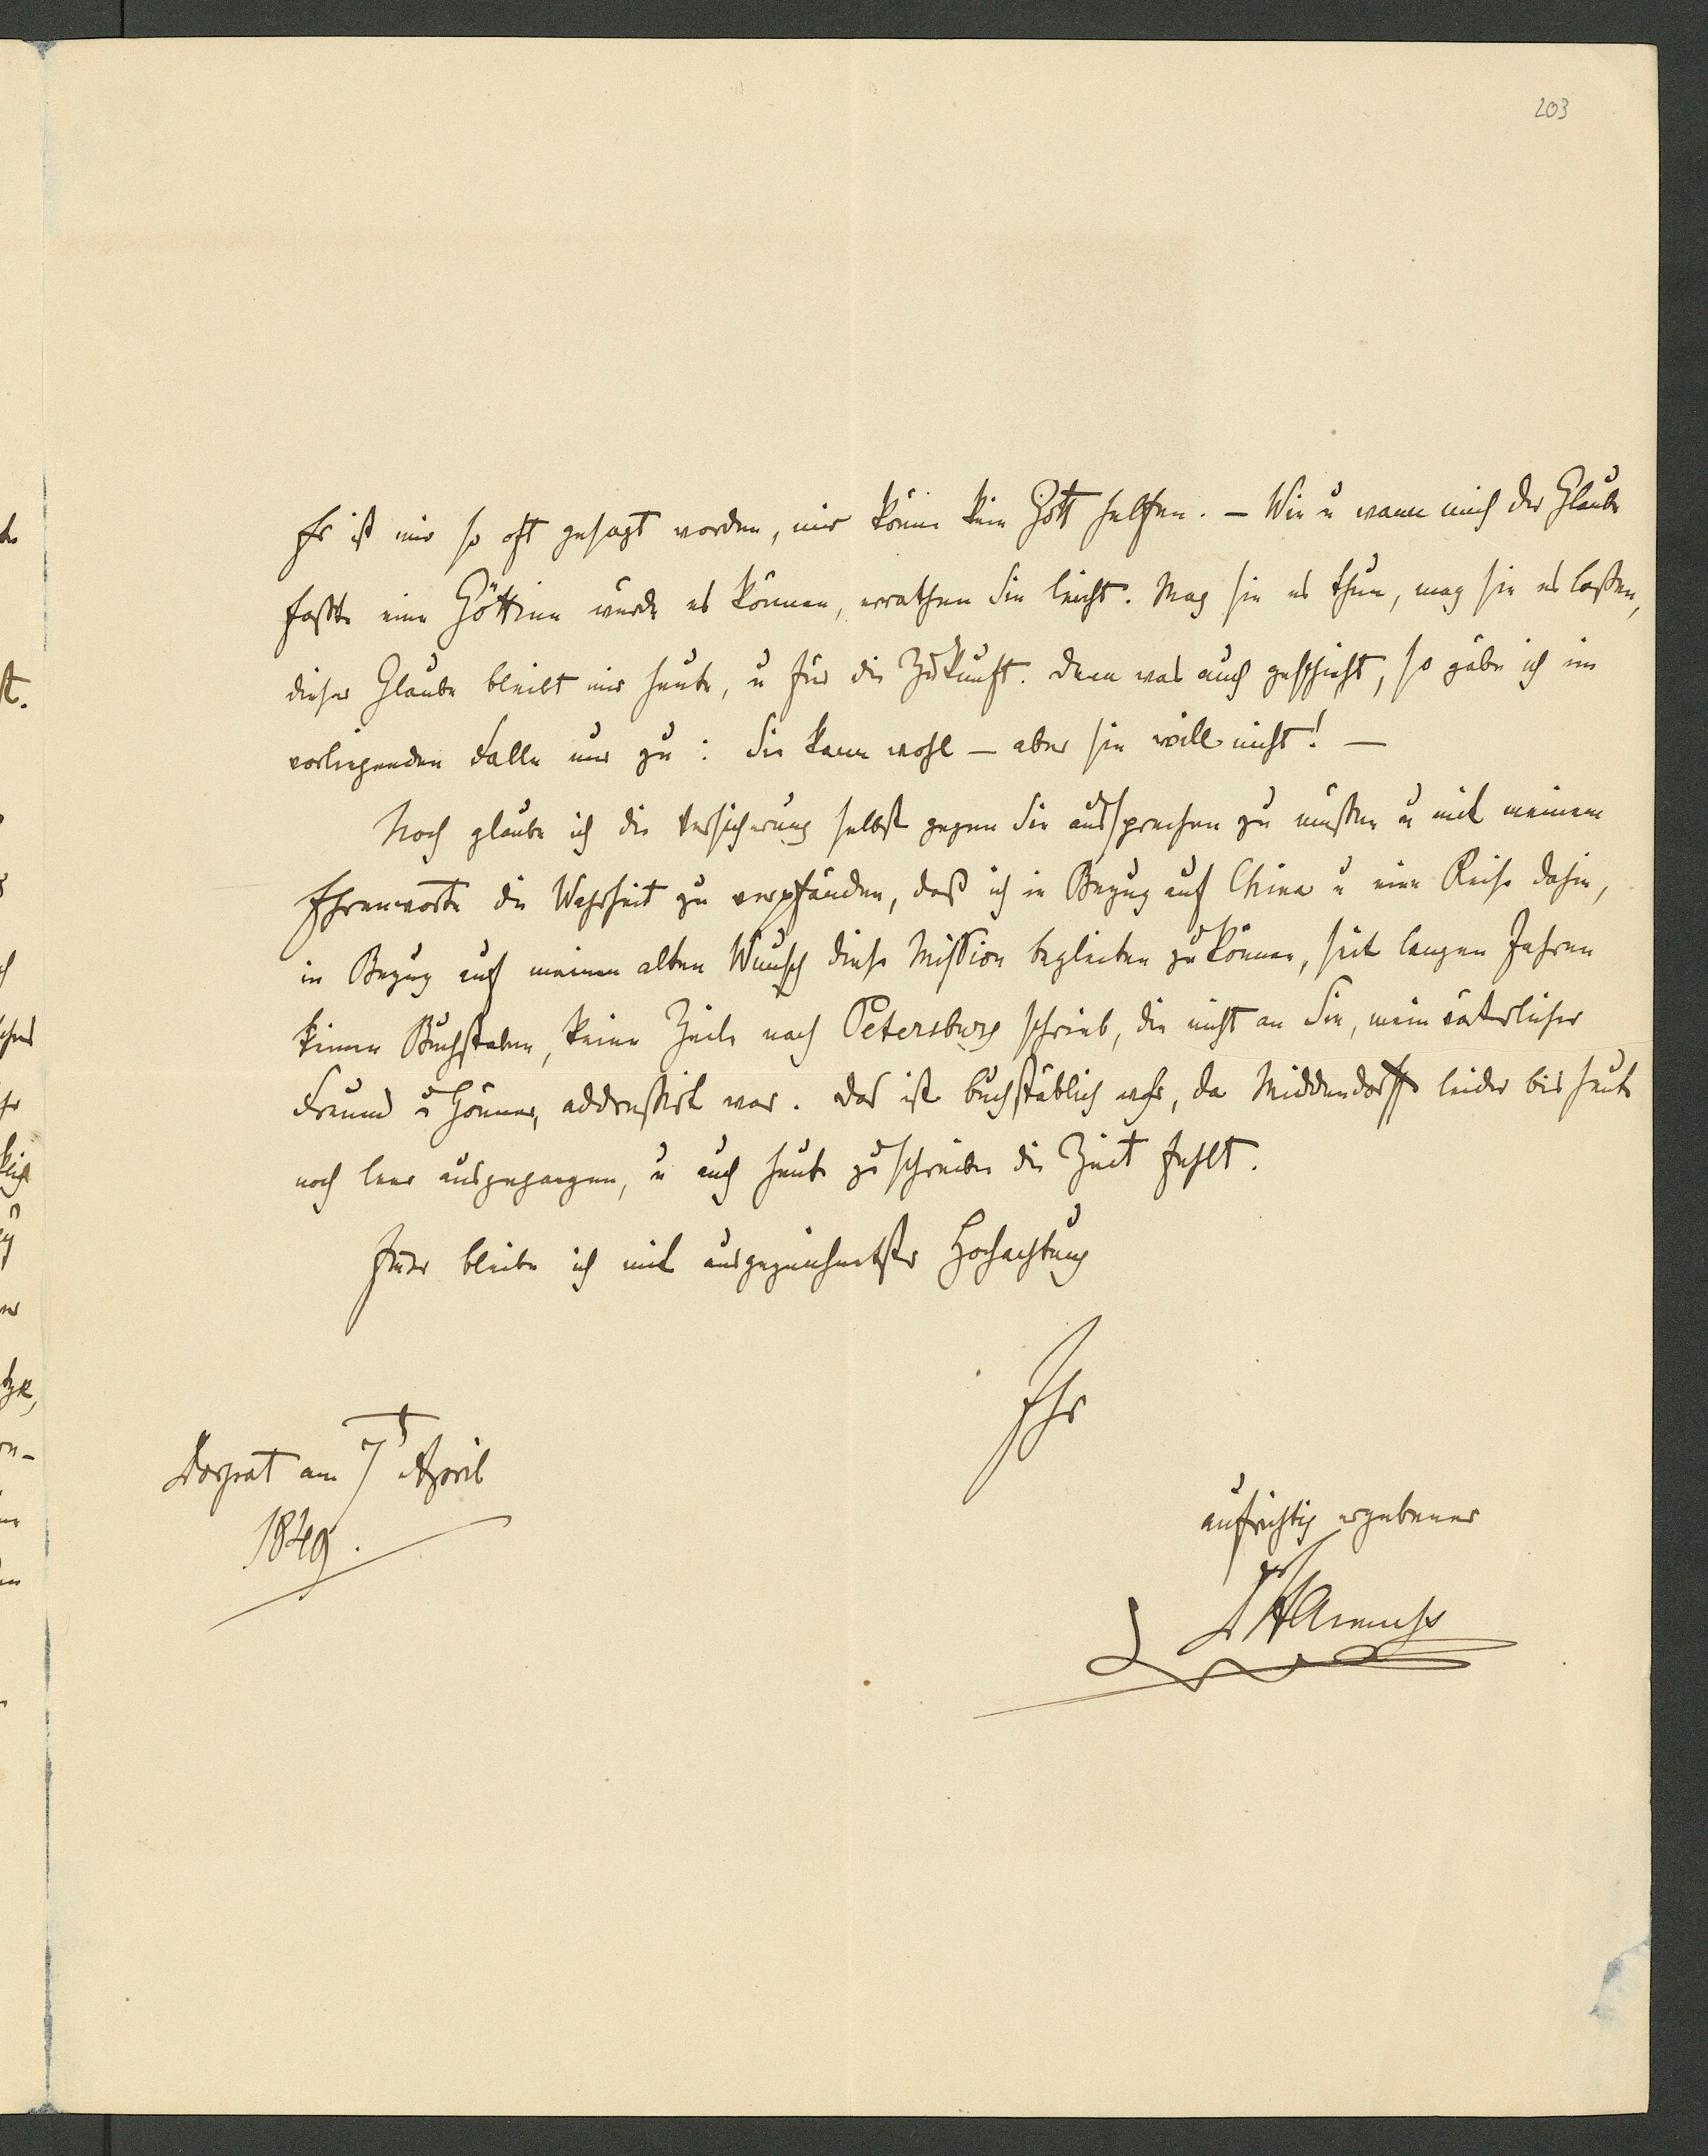 203
Es ist mir so oft gesagt worden, mir könne kein Gott helfen. — Wie u wann mich der Glaube
faßte eine Göttinn würde es können, errathen Sie leicht. Mag sie es thun, mag sie es laßen,
dieser Glaube bleibt mir heute, u für die Zukunft. Denn was auch geschieht, so gäbe ich im
vorliegenden Falle nur zu: Sie kann wohl — aber sie will nicht! —
Noch glaube ich die Versicherung selbst gegen Sie aussprechen zu müßen u mit meinem
Ehrenworte die Wahrheit zu verpfänden, daß ich in Bezug auf China u eine Reise dahin,
in Bezug auf meinen alten Wunsch diese Mission begleiten zu können, seit langen Jahren
keinen Buchstaben, keine Zeile nach Petersburg schrieb, die nicht an Sie, mein väterlicher
Freund u Gönner, addressirt war. Das ist buchstäblich wahr, da Middendorff leider bis heute
noch leer ausgegangen, u auch heute zu schreiben die Zeit fehlt.
bleibe ich mit ausgezeichnetster Hochachtung
Ihr
Dorpat am 7 April
1849.
aufrichtig ergebener